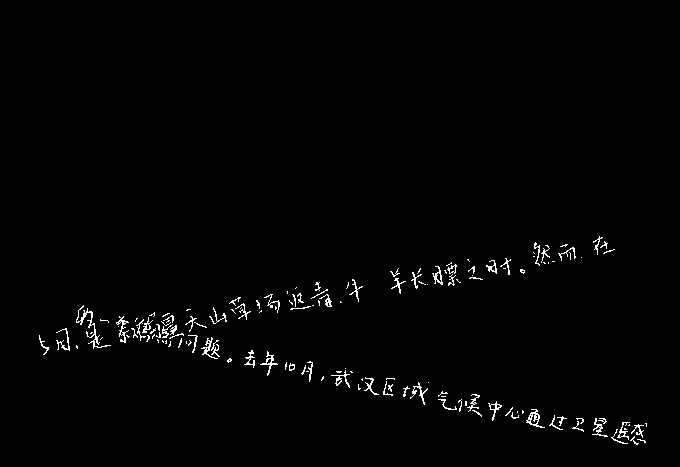 5月,是天山草场返青、牛羊长膘之时。然而,在
问题。去年10月,武汉区域气候中心通过卫星遥感